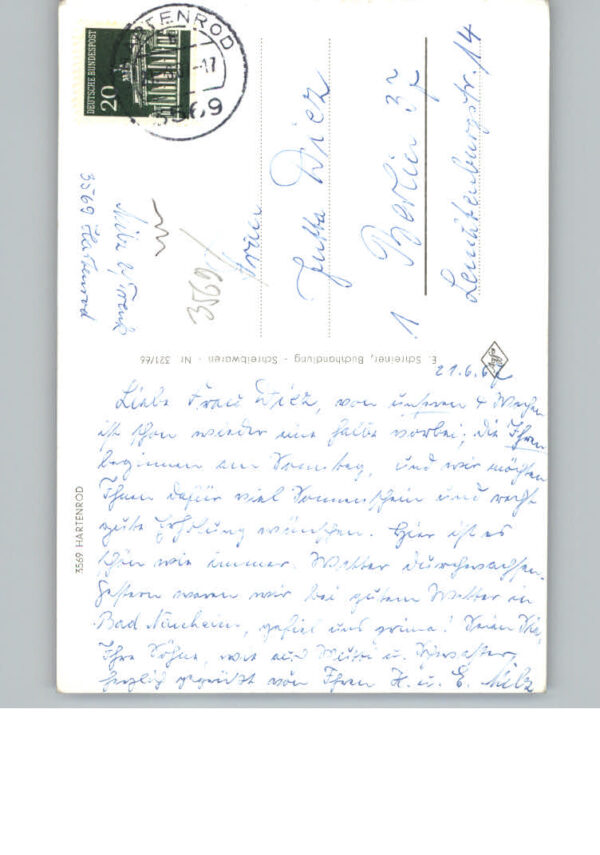 HARTENROD
3569
-17
DEUTSCHE BUNDESPOST
20
3569 Hartenrod
3569
Frau
Jutta Diez
1 Berlin 37
14
E. Schreiner, Buchhandlung - Schreibwaren - Nr. 321/66
3569 HARTENROD
21.6.67
Liebe Frau Diez, von unseren 4 Wochen
ist schon wieder eine halbe vorbei; die Ihren
beginnen am Sonntag, und wir möchten
Ihnen dafür viel Sonnenschein und recht
gute Erholung wünschen. Hier ist es
schön wie immer. Wetter durchwachsen.
Gestern waren wir bei gutem Wetter in
Bad Nauheim, gefiel uns prima! Seien Sie,
Ihre Söhne, wie auch Mutti u. Schwester,
herzlich gegrüßt von Ihren H. u. E. Milz